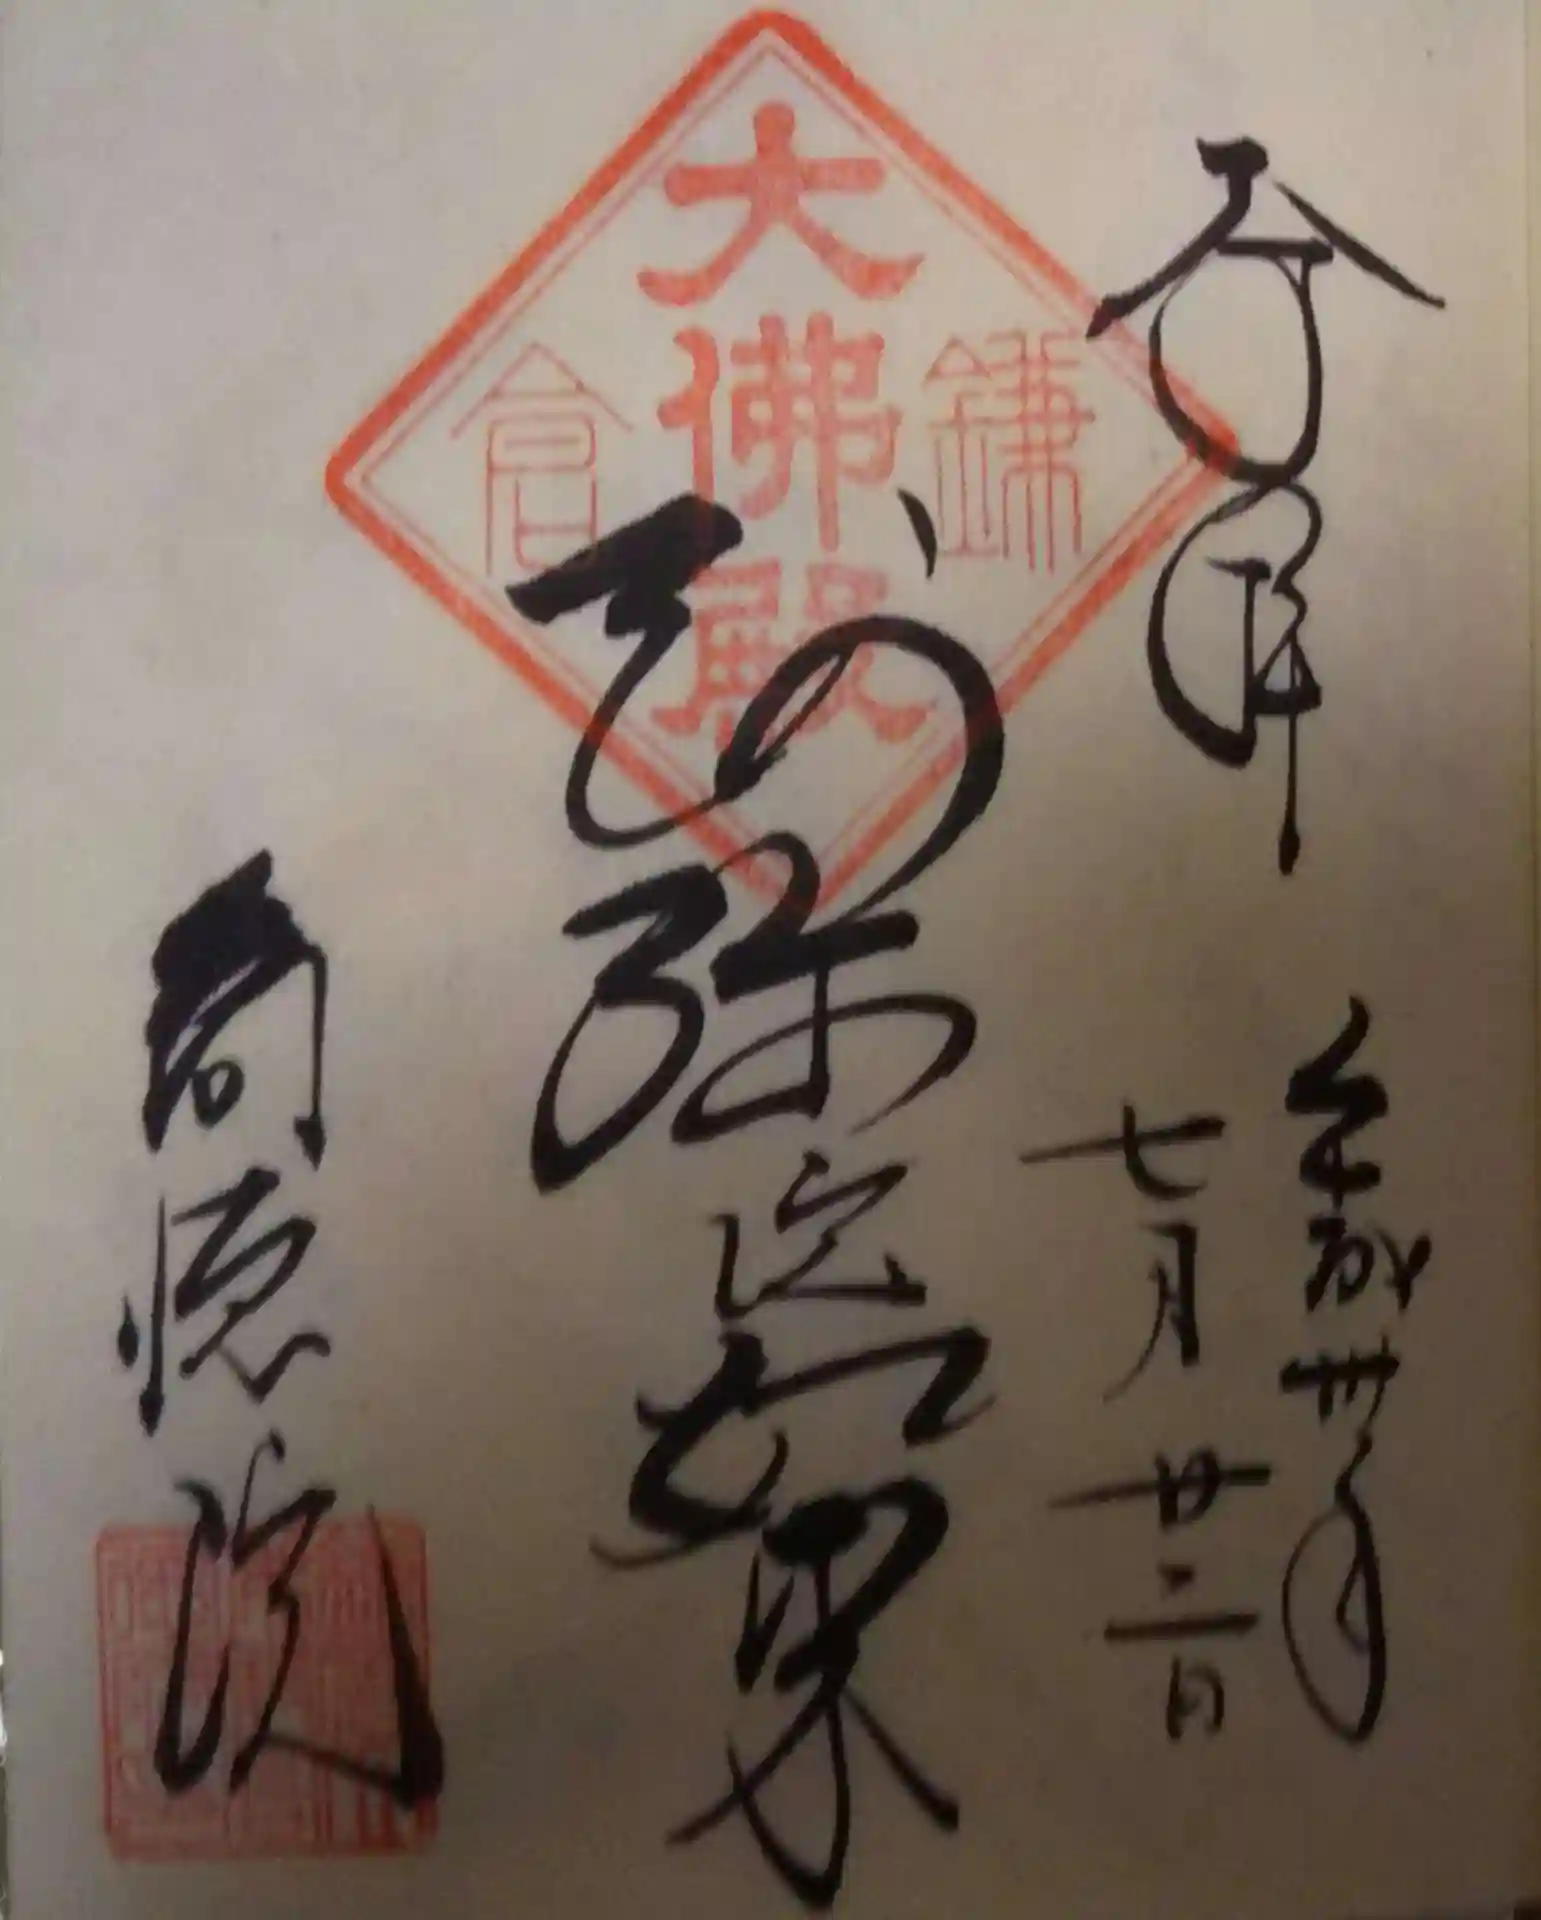 奉拝
平成卅年
七月廿二日
鎌倉
大佛殿
阿弥陀如来
高徳院